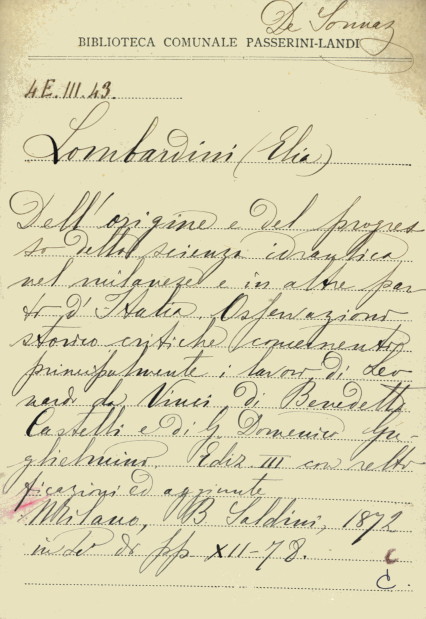 De Sonnaz
BIBLIOTECA COMUNALE PASSERINI-LANDI
4E.III.43.
Lombardini (Elia)
Dell'origine e del progres
so della scienza idraulica
nel milanese e in altre par
ti d'Italia. Osservazioni
storico critiche concernenti
principalmente i lavori di Leo
nardo da Vinci di Benedetto
Castelli e di G. Domenico Gu
glielmini. Ediz III con retti
ficazioni ed aggiunte
Milano, B Saldini, 1872
in 4° di pp XII-78.
C.